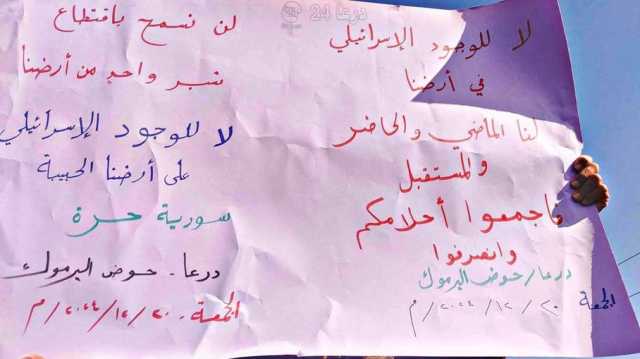 درعا 24
لا للوجود الإسرائيلي
في أرضنا
لنا الماضي والحاضر
والمستقبل
فاجمعوا أحلامكم
وانصرفوا
درعا/حوض اليرموك
الجمعة ٢٠/١٢/٢٠٢٤/م
لن نسمح باقتطاع
شبر واحد من أرضنا
لا للوجود الإسرائيلي
على أرضنا الحبيبة
سورية حرة
درعا. حوض اليرموك
الجمعة. ٢٠/١٢/٢٠٢٤/م